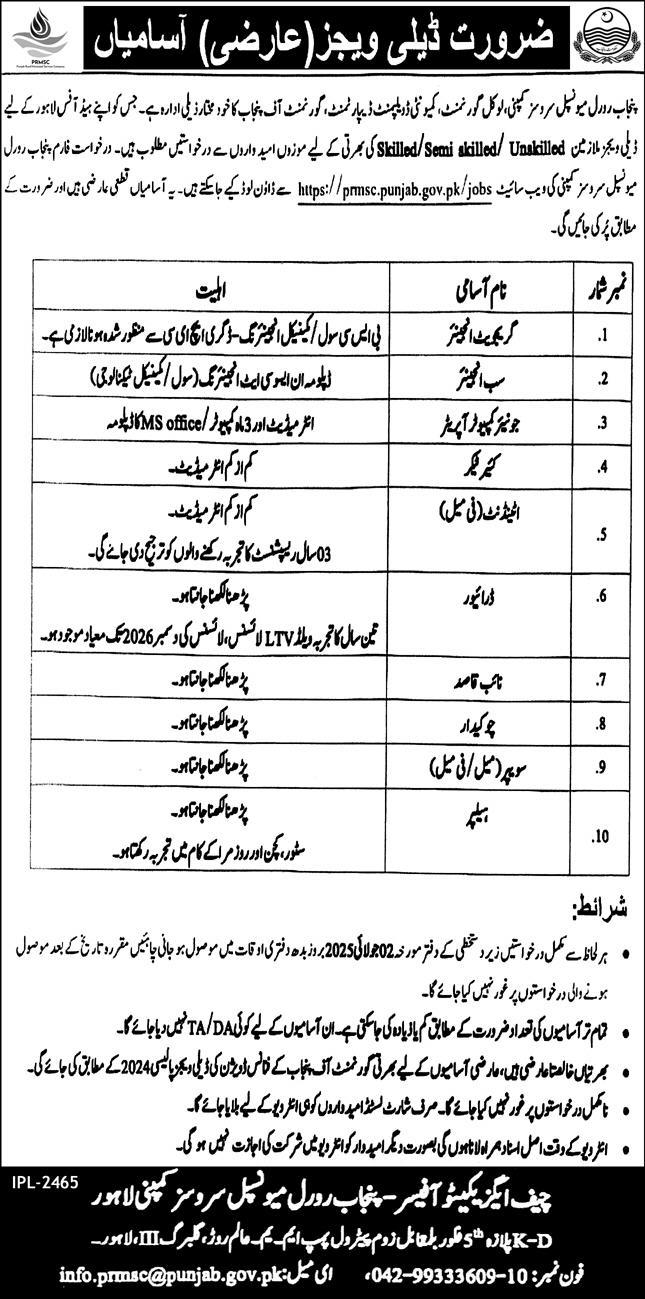 PRMSC
Punjab Rural Municipal Services Company
ضرورت ڈیلی ویجز (عارضی) آسامیاں
پنجاب رورل میونسپل سروسز کمپنی، لوکل گورنمنٹ، کمیونٹی ڈویلپمنٹ ڈیپارٹمنٹ، گورنمنٹ آف پنجاب کا خودمختار ذیلی ادارہ ہے۔ جس کو اپنے ہیڈ آفس لاہور کے لیے
ڈیلی ویجز ملازمین Skilled/Semi skilled/ Unskilled کی بھرتی کے لیے موزوں امیدواروں سے درخواستیں مطلوب ہیں۔ درخواست فارم پنجاب رورل
میونسپل سروسز کمپنی کی ویب سائیٹ https://prmsc.punjab.gov.pk/jobs سے ڈاؤن لوڈ کیے جاسکتے ہیں۔ یہ آسامیاں قطعی عارضی ہیں اور ضرورت کے
مطابق پُر کی جائیں گی۔
نمبر شمار نام آسامی اہلیت
1. گریجویٹ انجینئر بی ایس سی سول/ مکینیکل انجینئرنگ۔ ڈگری ایچ ای سی سے منظور شدہ ہونا لازمی ہے۔
2. سب انجینئر ڈپلومہ ان ایسوسی ایٹ انجینئرنگ (سول/ مکینیکل ٹیکنالوجی)
3. جونیئر کمپیوٹر آپریٹر انٹرمیڈیٹ اور 3 ماہ کمپیوٹر/ MS office کا ڈپلومہ
4. کیئر ٹیکر کم از کم انٹرمیڈیٹ۔
5. اٹینڈنٹ (فی میل) کم از کم انٹرمیڈیٹ۔
03 سال ریسپشنسٹ کا تجربہ رکھنے والوں کو ترجیح دی جائے گی۔
6. ڈرائیور پڑھنا لکھنا جانتا ہو۔
تین سال کا تجربہ ویلڈ LTV لائسنس، لائسنس کی دسمبر 2026 تک معیاد موجود ہو۔
7. نائب قاصد پڑھنا لکھنا جانتا ہو۔
8. چوکیدار پڑھنا لکھنا جانتا ہو۔
9. سویپر (میل/ فی میل) پڑھنا لکھنا جانتا ہو۔
10. ہیلپر پڑھنا لکھنا جانتا ہو۔
سٹور، کچن اور روزمرا کے کام میں تجربہ رکھتا ہو۔
شرائط:
• ہر لحاظ سے مکمل درخواستیں زیر دستخطی کے دفتر مورخہ 02 جولائی 2025 بروز بدھ دفتری اوقات میں موصول ہو جانی چاہئیں مقررہ تاریخ کے بعد موصول
ہونے والی درخواستوں پر غور نہیں کیا جائے گا۔
• تمام تر آسامیوں کی تعداد ضرورت کے مطابق کم یا زیادہ کی جاسکتی ہے۔ ان آسامیوں کے لیے کوئی TA/DA نہیں دیا جائے گا۔
• بھرتیاں خالصتا عارضی ہیں، عارضی آسامیوں کے لیے بھرتی گورنمنٹ آف پنجاب کے فنانس ڈویژن کی ڈیلی ویجز پالیسی 2024 کے مطابق کی جائے گی۔
• نامکمل درخواستوں پر غور نہیں کیا جائے گا۔ صرف شارٹ لسٹڈ امیدواروں کو ہی انٹرویو کے لیے بلایا جائے گا۔
• انٹرویو کے وقت اصل اسناد ہمراہ لانا ہوں گی بصورت دیگر امیدوار کو انٹرویو میں شرکت کی اجازت نہیں ہوگی۔
IPL-2465
چیف ایگزیکیٹو آفیسر - پنجاب رورل میونسپل سروسز کمپنی لاہور
K-D پلازہ 5th فلور بلمقابل زوم پیٹرول پمپ ایم۔ ایم۔ عالم روڈ، گلبرگ III، لاہور۔
فون نمبر: 042-99333609-10، ای میل: info.prmsc@punjab.gov.pk